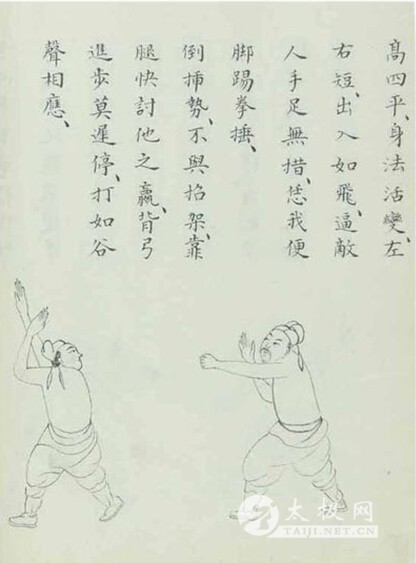 高四平、身法活變、左
右短、出入如飛、逼敵
人手足無措、恁我便
脚踢拳捶、
倒揷勢、不與招架、靠
腿快討他之赢、背弓
進步莫遲停、打如谷
聲相應、
太极网
TAIJI.NET.CN